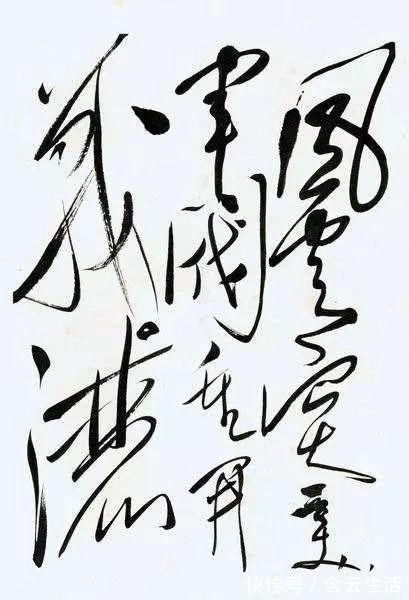 風雲突變
軍閥重開
戰灑
快传号 / 含云生活